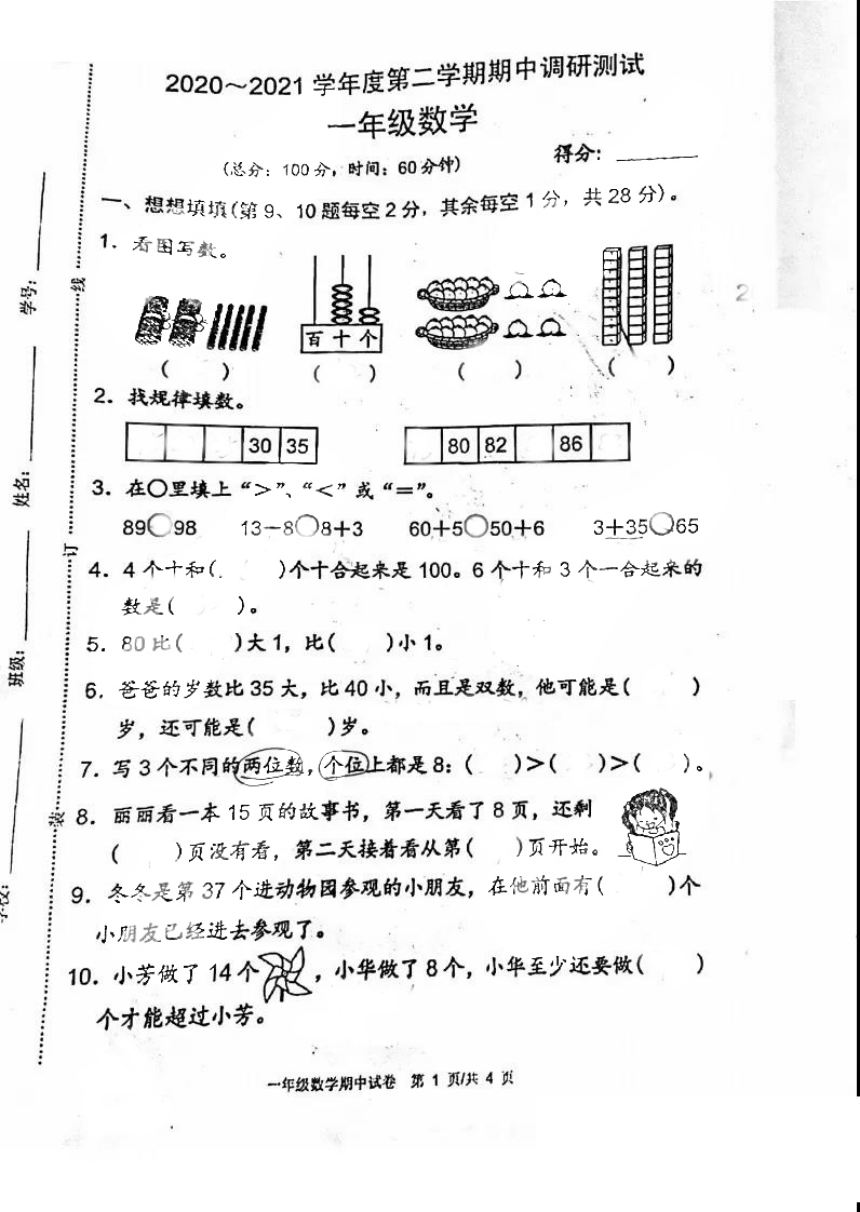 2020～2021 学年度第二学期期中调研测试
一年级数学
(总分：100分，时间：60分钟)
得分：
一、想想填填(第 9、10 题每空 2 分，其余每空 1 分，共 28 分)。
1. 看图写数。
百 十 个
( ) ( ) ( ) ( )
2. 找规律填数。
30 35 80 82 86
3. 在○里填上“>”、“<”或“=”。
89○98 13-8○8+3 60+5○50+6 3+35○65
4. 4 个十和( )个十合起来是 100。6 个十和 3 个一合起来的
数是( )。
5. 80 比( )大 1，比( )小 1。
6. 爸爸的岁数比 35 大，比 40 小，而且是双数，他可能是( )
岁，还可能是( )岁。
7. 写 3 个不同的两位数，个位上都是 8：( )>( )>( )。
8. 丽丽看一本 15 页的故事书，第一天看了 8 页，还剩
( )页没有看，第二天接着看从第( )页开始。
9. 冬冬是第 37 个进动物园参观的小朋友，在他前面有( )个
小朋友已经进去参观了。
10. 小芳做了 14 个 ，小华做了 8 个，小华至少还要做( )
个才能超过小芳。
一年级数学期中试卷 第 1 页/共 4 页
学号：
姓名：
班级：
线
订
装
2